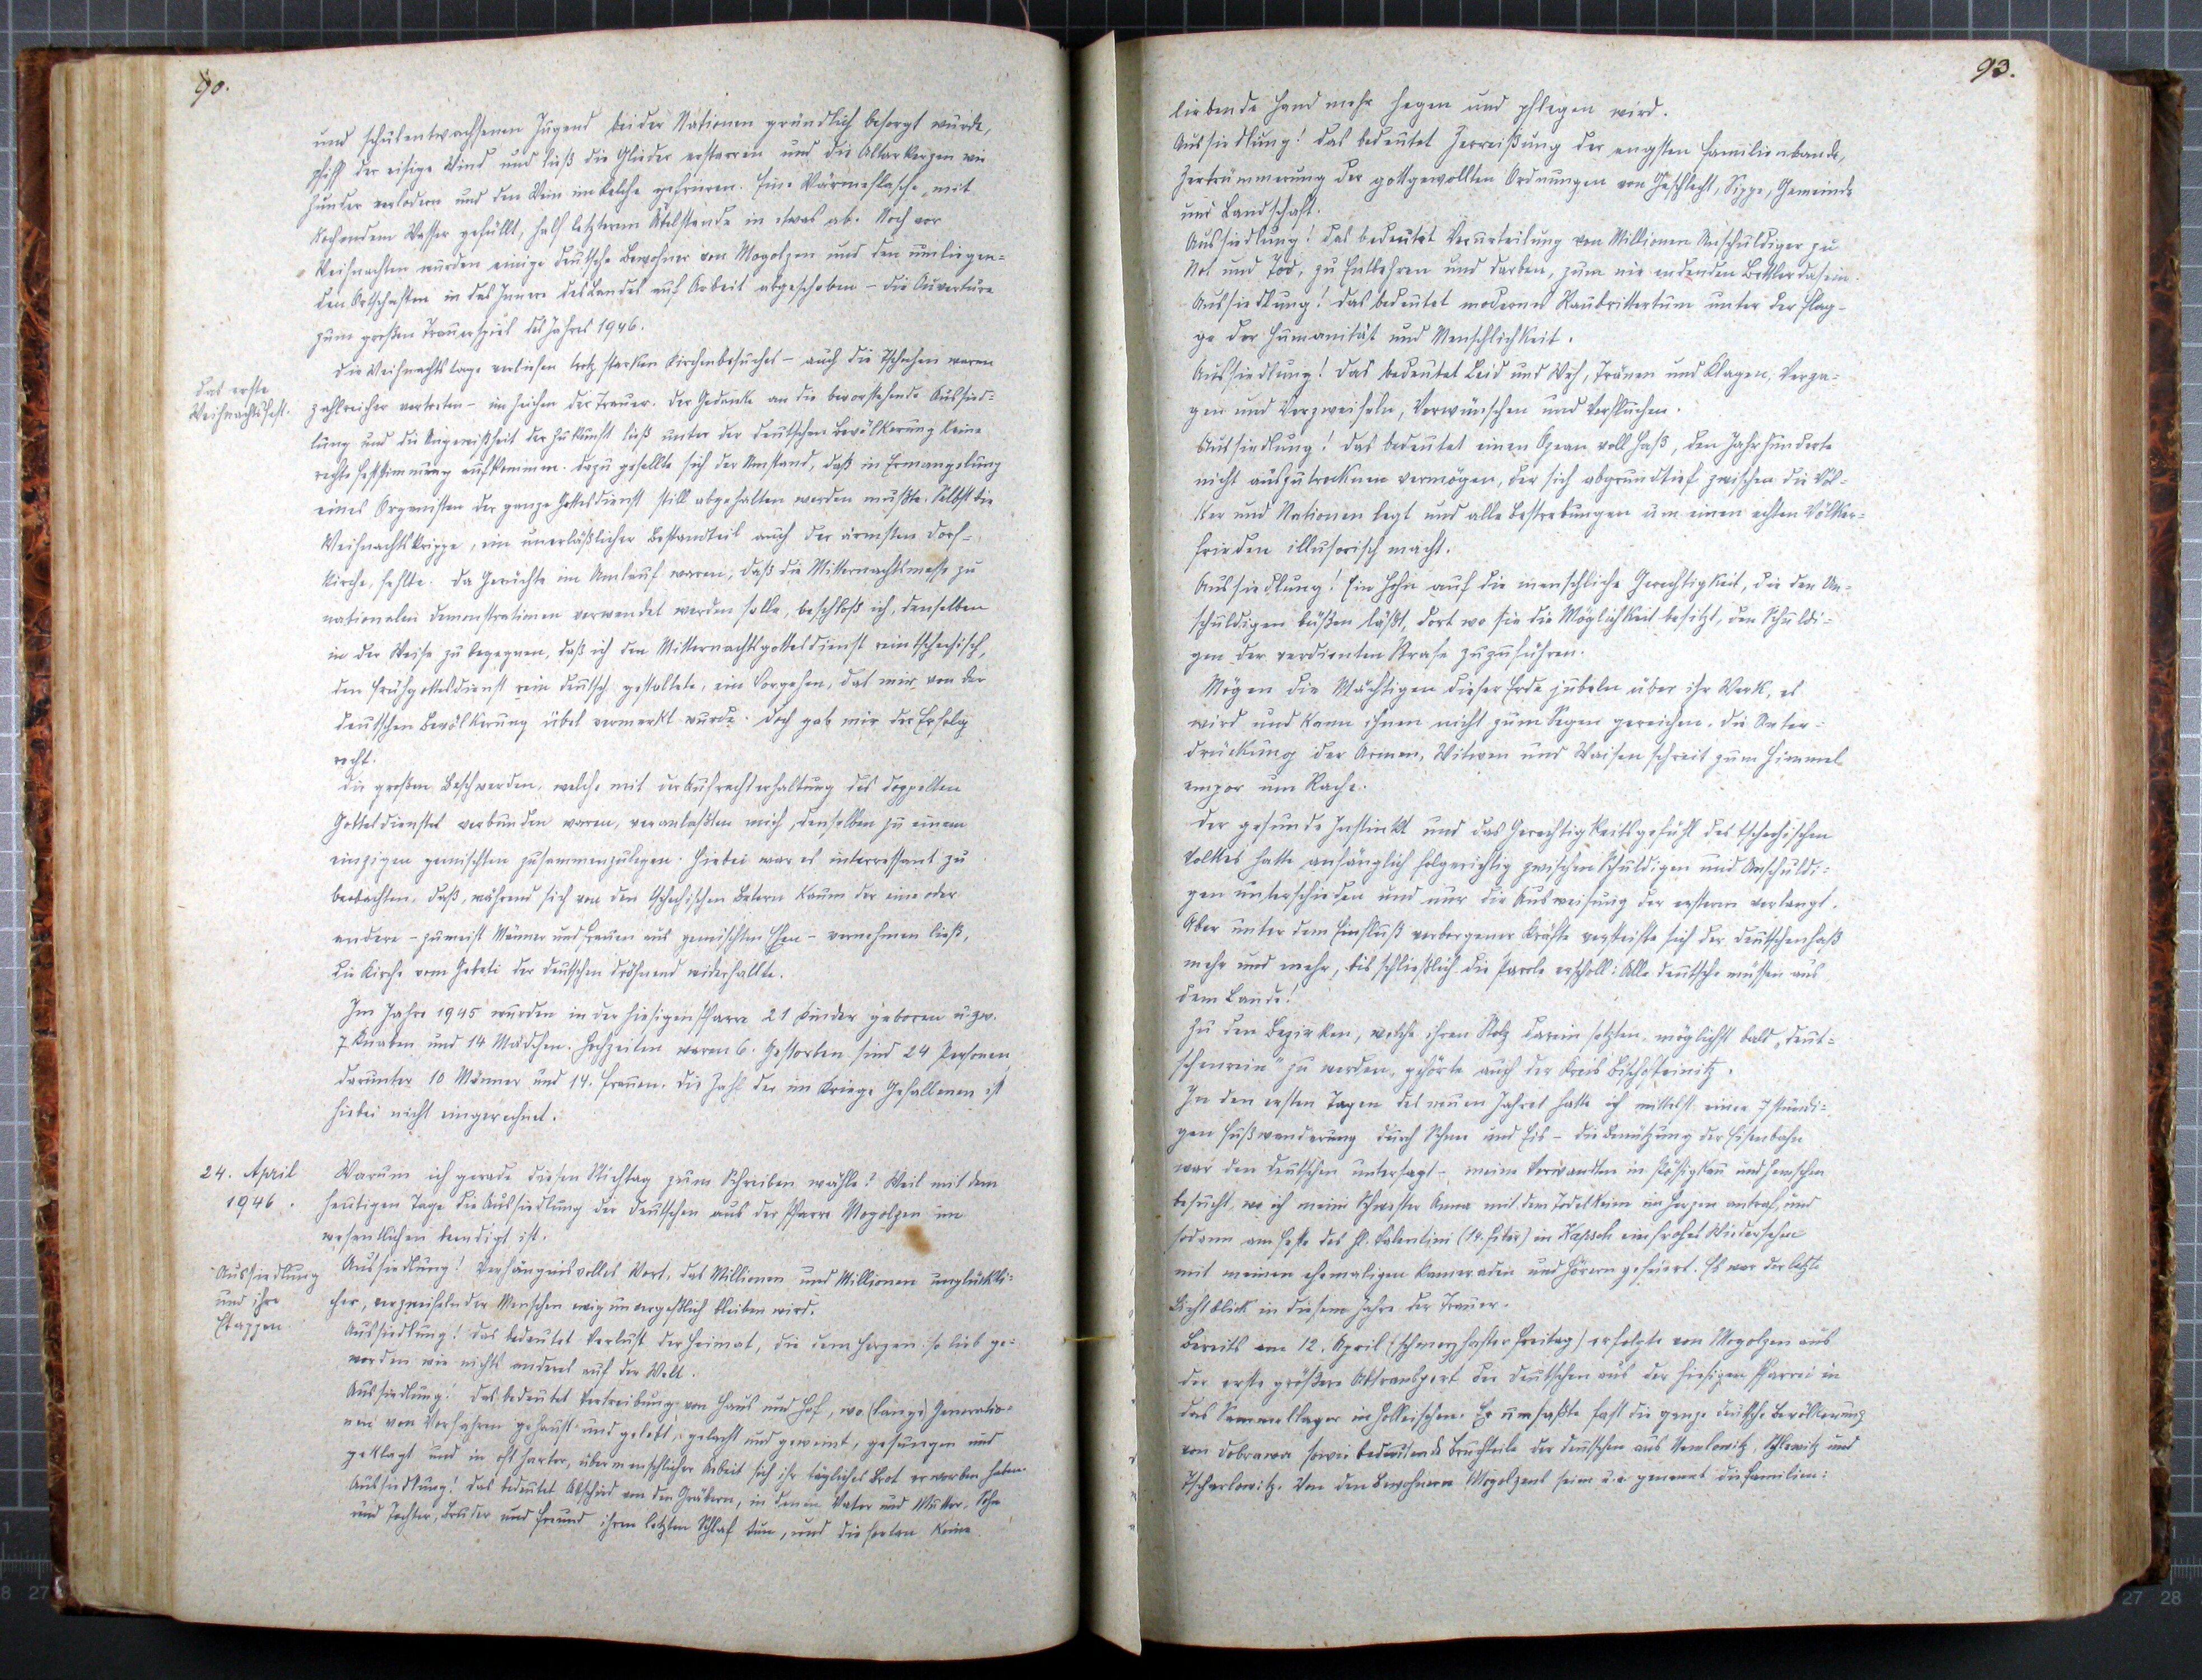 90.
und schulentwachsenen Jugend beider Nationen gründlich besorgt wurde,
pfiff der eisige Wind und ließ die Glieder erstarren und die Altarkerzen wie
Zunder verlodern und den Wein im Kelche gefrieren. Eine Wärmeflasche, mit
kochendem Wasser gefüllt, half letzterem Übelstande in etwas ab. Noch vor
Weihnachten wurden einige deutsche Bewohner von Mogolzen und den umliegen=
den Ortschaften in das Innere des Landes auf Arbeit abgeschoben – die Ouverture
zum großen Trauerspiel des Jahres 1946.
Das erste
Weihnachtsfest.
Die Weihnachtstage verliefen trotz starken Kirchenbesuches – auch die Tschechen waren
zahlreicher vertreten – im Zeichen der Trauer. Der Gedanke an die bevorstehende Aussied=
lung und die Ungewißheit der Zukunft ließ unter der deutschen Bevölkerung keine
rechte Feststimmung aufkommen. Dazu gesellte sich der Umstand, daß in Ermangelung
eines Organisten der ganze Gottesdienst still abgehalten werden mußte. Selbst die
Weihnachtskrippe, ein unerläßlicher Bestandteil auch der ärmsten Dorf=
kirche, fehlte. Da Gerüchte im Umlauf waren, daß die Mitternachtsmesse zu
nationalen Demonstrationen verwendet werden solle, beschloß ich, denselben
in der Weise zu begegnen, daß ich den Mitternachtsgottesdienst rein tschechisch,
den Frühgottesdienst rein deutsch gestaltete, ein Vorgehen, das mir von der
deutschen Bevölkerung übel vermerkt wurde. Doch gab mir der Erfolg
recht.
Die großen Beschwerden, welche mit der Aufrechterhaltung des doppelten
Gottesdienstes verbunden waren, veranlaßten mich, denselben zu einem
einzigen gemischten zusammenzulegen. Hiebei war es interressant zu
beobachten, daß, während sich von den tschechischen Betern kaum der eine oder
andere – zumeist Männer und Frauen aus gemischten Ehen – vernehmen ließ,
die Kirche vom Gebete der Deutschen dröhnend widerhallte.
Im Jahre 1945 wurden in der hiesigen Pfarre 21 Kinder geboren u.zw.
7 Knaben und 14 Mädchen. Hochzeiten waren 6. Gestorben sind 24 Personen,
darunter 10 Männer und 14. Frauen. Die Zahl der im Kriege Gefallenen ist
hiebei nicht eingerechnet.
24. April
1946.
Warum ich gerade diesen Stichtag zum Schreiben wähle? Weil mit dem
heutigen Tage die Aussiedlung der Deutschen aus der Pfarre Mogolzen im
wesentlichen beendigt ist.
Aussiedlung
und ihre
Etappen.
Aussiedlung! Verhängnisvolles Wort, das Millionen und Millionen unglückli=
cher, verzweifelnder Menschen ewig unvergeßlich bleiben wird.
Aussiedlung! Das bedeutet Verlust der Heimat, die dem Herzen so lieb ge=
worden wie nichts anderes auf der Welt.
Aussiedlung! Das bedeutet Vertreibung von Haus und Hof, wo (lange) Generatio=
nen von Vorfahren gehaust und gelebt, gelacht und geweint, gesungen und
geklagt und in oft harter, übermenschlicher Arbeit sich ihr tägliches Brot erworben haben.
Aussiedlung! Das bedeutet Abschied von den Gräbern, in denen Vater und Mutter, Sohn
und Tochter, Bruder und Freund ihren letzten Schlaf tun, und die fortan keine
93.
liebende Hand mehr hegen und pflegen wird.
Aussiedlung! Das bedeutet Zerreißung der engsten Familienbande,
Zertrümmerung der gottgewollten Ordnungen von Geschlecht, Sippe, Gemeinde
und Landschaft.
Aussiedlung! Das bedeutet Verurteilung von Millionen Unschuldiger zu
Not und Tod, zu Entbehren und Darben, zum nie endenden Bettlerdasein.
Aussiedlung! Das bedeutet modernes Raubrittertum unter der Flag=
ge der Humanität und Menschlichkeit.
Aussiedlung! Das bedeutet Leid und Weh, Tränen und Klagen, Verza=
gen und Verzweifeln, Verwünschen und Verfluchen.
Aussiedlung! Das bedeutet einen Ozean voll Haß, den Jahrhunderte
nicht auszutrocknen vermögen, der sich abgrundtief zwischen die Völ=
ker und Nationen legt und alle Bestrebungen um einen echten Völker=
frieden illusorisch macht.
Aussiedlung! Ein Hohn auf die menschliche Gerechtigkeit, die den Un=
schuldigen büßen läßt, dort wo sie die Möglichkeit besitzt, den Schuldi=
gen der verdienten Strafe zuzuführen.
Mögen die Mächtigen dieser Erde jubeln über ihr Werk, es
wird und kann ihnen nicht zum Segen gereichen. Die Unter=
drückung der Armen, Witwen und Waisen schreit zum Himmel
empor um Rache.
Der gesunde Instinkt und das Gerechtigkeitsgefühl des tschechischen
Volkes hatte anfänglich folgerichtig zwischen Schuldigen und Unschuldi=
gen unterschieden und nur die Ausweisung der ersteren verlangt.
Aber unter dem Einfluß verborgener Kräfte versteifte sich der Deutschenhaß
mehr und mehr, bis schließlich die Parole erscholl: Alle Deutsche müssen aus
dem Lande!
Zu den Bezirken, welche ihren Stolz darein setzten, möglichst bald „deut=
schenrein" zu werden, gehörte auch der Kreis Bischofteinitz.
In den ersten Tagen des neuen Jahres hatte ich mittelst einer 7stündi=
gen Fußwanderung durch Schnee und Eis – die Benützung der Eisenbahn
war den Deutschen untersagt – meine Verwandten in und
besucht, wo ich meine Schwester Anna mit dem Todeskeim im Herzen antraf, und
sodann am Feste des hl. Valentini (14. feber) in Kapsch ein frohes Wiedersehen
mit meinen ehemaligen Kameraden und Hörern gefeiert. Es war der letzte
Lichtblick in diesem Jahre der Trauer.
Bereits am 12. April (schmerzhafter Freitag) erfolgte von Mogolzen aus
der erste größere Abtransport der Deutschen aus der hiesigen Pfarrei in
das Sammellager in Holleischen. Er umfaßte fast die ganze deutsche Bevölkerung
von Dobrowa sowie bedeutende Bruchteile der Deutschen aus und
Tscharlowitz. Von den Bewohnern Mogolzens seien u.a. genannt die Familien: